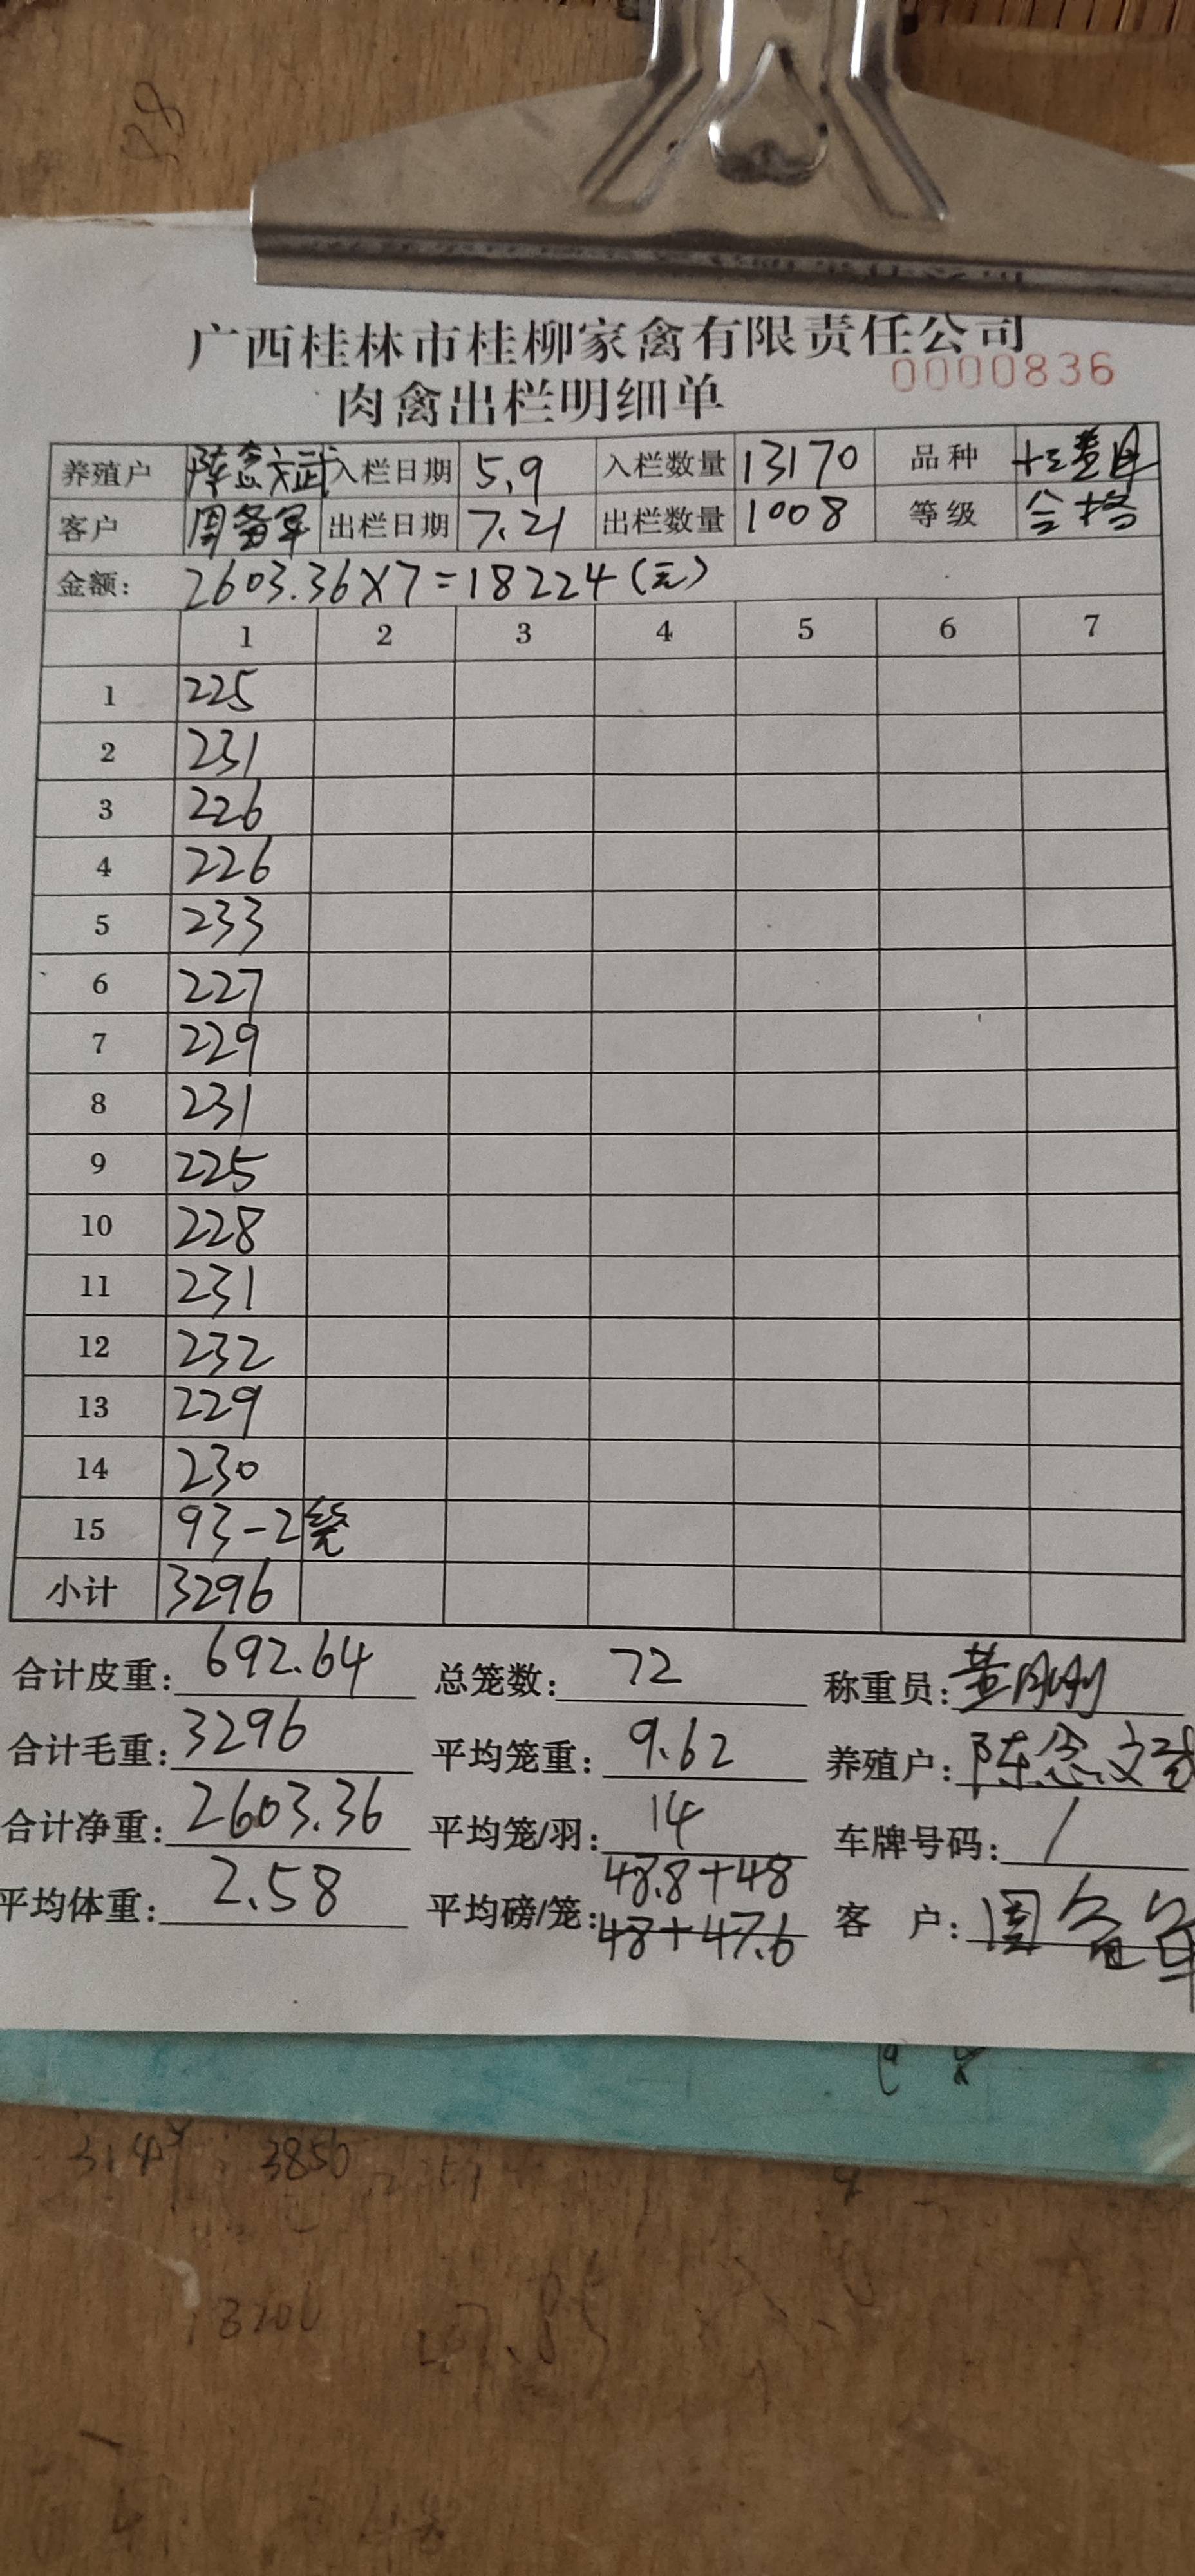 广西桂林市桂柳家禽有限责任公司
0000836
肉禽出栏明细单
养殖户 陈念文武 入栏日期 5.9 入栏数量 13170 品种
客户 周备军 出栏日期 7.21 出栏数量 1008 等级 合格
金额: 2603.36×7=18224(元)
1 2 3 4 5 6 7
1 225
2 231
3 226
4 226
5 233
6 227
7 229
8 231
9 225
10 228
11 231
12 232
13 229
14 230
15 93-2笼
小计 3296
合计皮重: 692.64 总笼数: 72 称重员: 黄刚刚
合计毛重: 3296 平均笼重: 9.62 养殖户: 陈念文武
合计净重: 2603.36 平均笼/羽: 14 车牌号码: /
平均体重: 2.58 平均磅/笼: 48.8+48 客 户: 周备军
48+47.6
3850